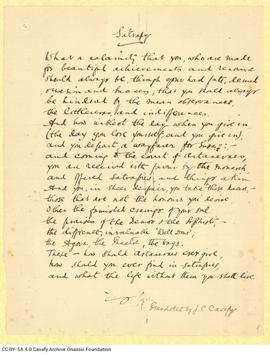 Satrapy
What a calamity that you, who are made
for beautiful achievements and renowned
should always be, through your hard fate, denied
occasion and success; that you should always
be hindered by the mean observances,
the littlenesses, and indifferences.
And how wicked the day when you give in
(the day you lose yourself and you give in),
and you depart a wayfarer for Susa; —
and coming to the court of Artaxerxes,
you are received with favour by the monarch
and offered Satrapies, and things akin
And you, in sheer despair, you take these,
those that are not the honours you crave
Other the famished cravings of your soul:
the praises of the Demos & the Sophists —
the difficult, invaluable "Well Done",
the Agora, the Theatre, the Bays.
These — how should Artaxerxes ever give,
how should you ever find in satrapies,
and what the life without them you shall live.
translated by J. C. Cavafy
CC BY-SA 4.0 Cavafy Archive Onassis Foundation